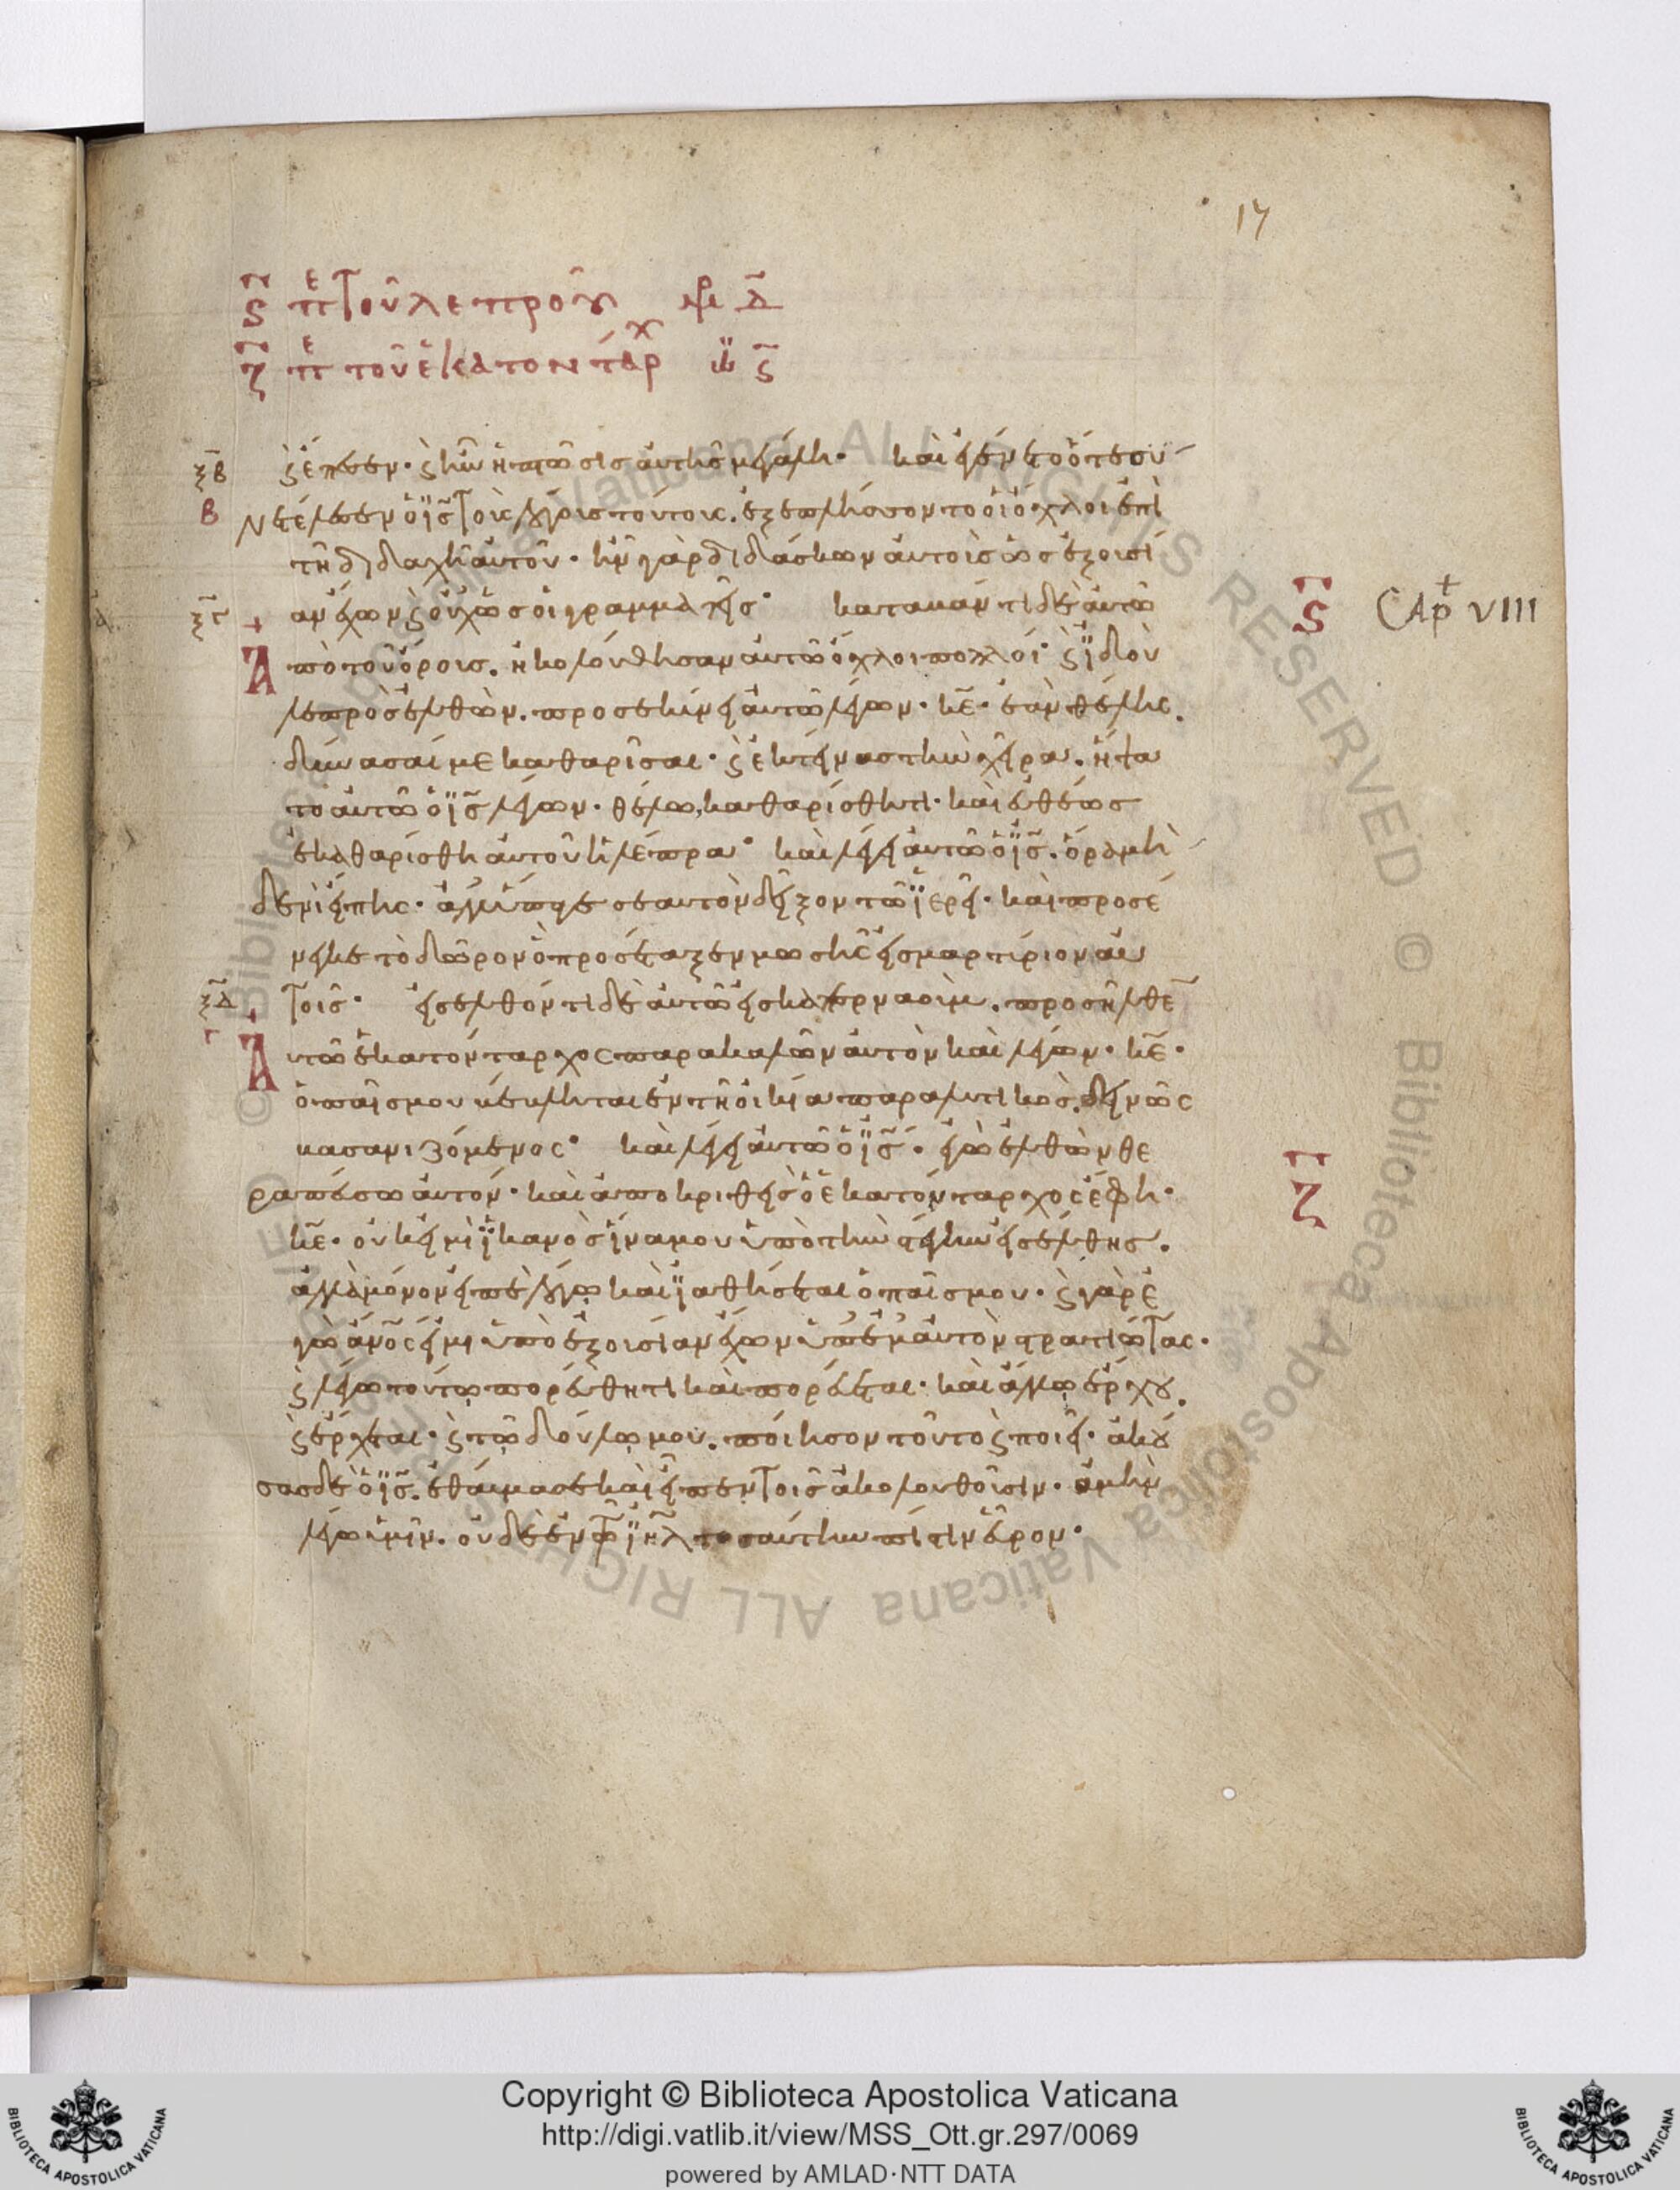 17
ς πε τοῦ λεπροῦ
ζ πε τοῦ ἑκατοντάρχ
ξβ ϛ ἔπεσεν· ϛ ἦν ἡ πτῶσις αὐτῆς μεγάλη· καὶ ἐγένετο ὅτε συν
β ετέλεσεν ὁ ις τοὺς λόγους τούτους. ἐξεπλήσσοντο οἱ ὄχλοι ἐπὶ
τῆ διδαχῆ αὐτοῦ· ἦν γὰρ διδάσκων αὐτοὺς ὡς ἐξουσί
ξγ αν ἔχων ϛ οὐχ ὡς οἱ γραμματεῖς· καταβάντι δὲ αὐτῶ
ς CAp VIII
Ἀπὸ τοῦ ὄρους. ἠκολούθησαν αὐτῶ ὄχλοι πολλοί· ϛ ἰδοὺ
λεπρὸς ἐλθὼν. προσεκύνει αὐτῶ λέγων· κε· ἐὰν θέλης.
δύνασαί με καθαρῖσαι· ϛ ἐκτείνας τὴν χεῖρα. ἥψα
το αὐτῶ ὁ ις λέγων· θέλω, καθαρίσθητι· καὶ εὐθέως
ἐκαθαρίσθη αὐτοῦ ἡ λέπρα· καὶ λέγει αὐτῶ ὁ ις. ὅρα μὴ
δενὶ εἴπης· ἀλλ' ὕπαγε σεαυτὸν δεῖξον τῶ ἱερεῖ· καὶ προσέ
νεγκε τὸ δῶρον ὃ προσέταξεν μωσῆς εἰς μαρτύριον αὐ
ξδ τοῖς· εἰσελθόντι δὲ αὐτῶ εἰς καπερναούμ. προσῆλθε
γ Ἀυτῶ ἑκατόνταρχος παρακαλῶν αὐτὸν καὶ λέγων· κε·
ὁ παῖς μου βέβληται ἐν τῆ οἰκία παραλυτικὸς. δεινῶς
βασανιζόμενος· καὶ λέγει αὐτῶ ὁ ις. ἐγὼ ἐλθὼν θε
ζ
ραπεύσω αὐτόν· καὶ ἀποκριθεὶς ὁ ἑκατόνταρχος ἔφη·
κε· οὐκ εἰμὶ ἱκανὸς ἵνα μου ὑπὸ τὴν στέγην εἰσέλθης.
ἀλλὰ μόνον εἰπὲ λόγω καὶ ἰαθήσεται ὁ παῖς μου· ϛ γὰρ ἐ
γὼ ανος εἰμι ὑπὸ ἐξουσίαν ἔχων ὑπ' ἐμαυτὸν στρατιώτας·
ϛ λέγω τούτω πορεύθητι καὶ πορεύεται· καὶ ἄλλω ἔρχου.
ϛ ἔρχεται· ϛ τῶ δούλω μου. ποίησον τοῦτο ϛ ποιεῖ· ἀκού
σας δὲ ὁ ις. ἐθαύμασε καὶ εἶπεν τοῖς ἀκολουθοῦσιν· ἀμὴν
λέγω ὑμῖν. οὐδὲ ἐν τῶ ιηλ τοσαύτην πίστιν εὗρον·
Copyright © Biblioteca Apostolica Vaticana
http://digi.vatlib.it/view/MSS_Ott.gr.297/0069
powered by AMLAD·NTT DATA